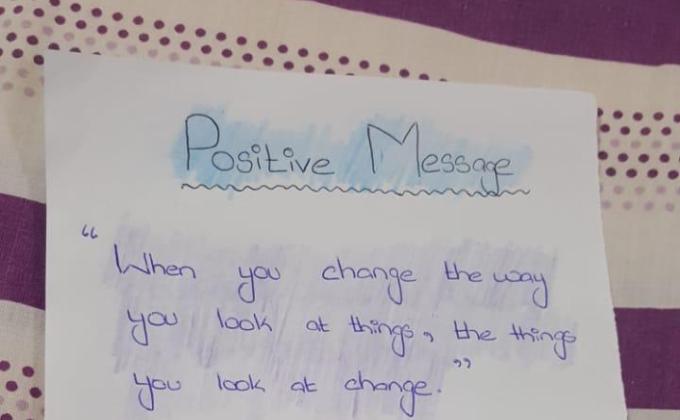 Positive Message
“When you change the way
you look at things, the things
you look at change.”